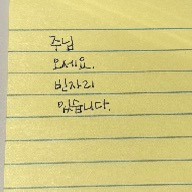 주님
오세요.
빈자리
있습니다.